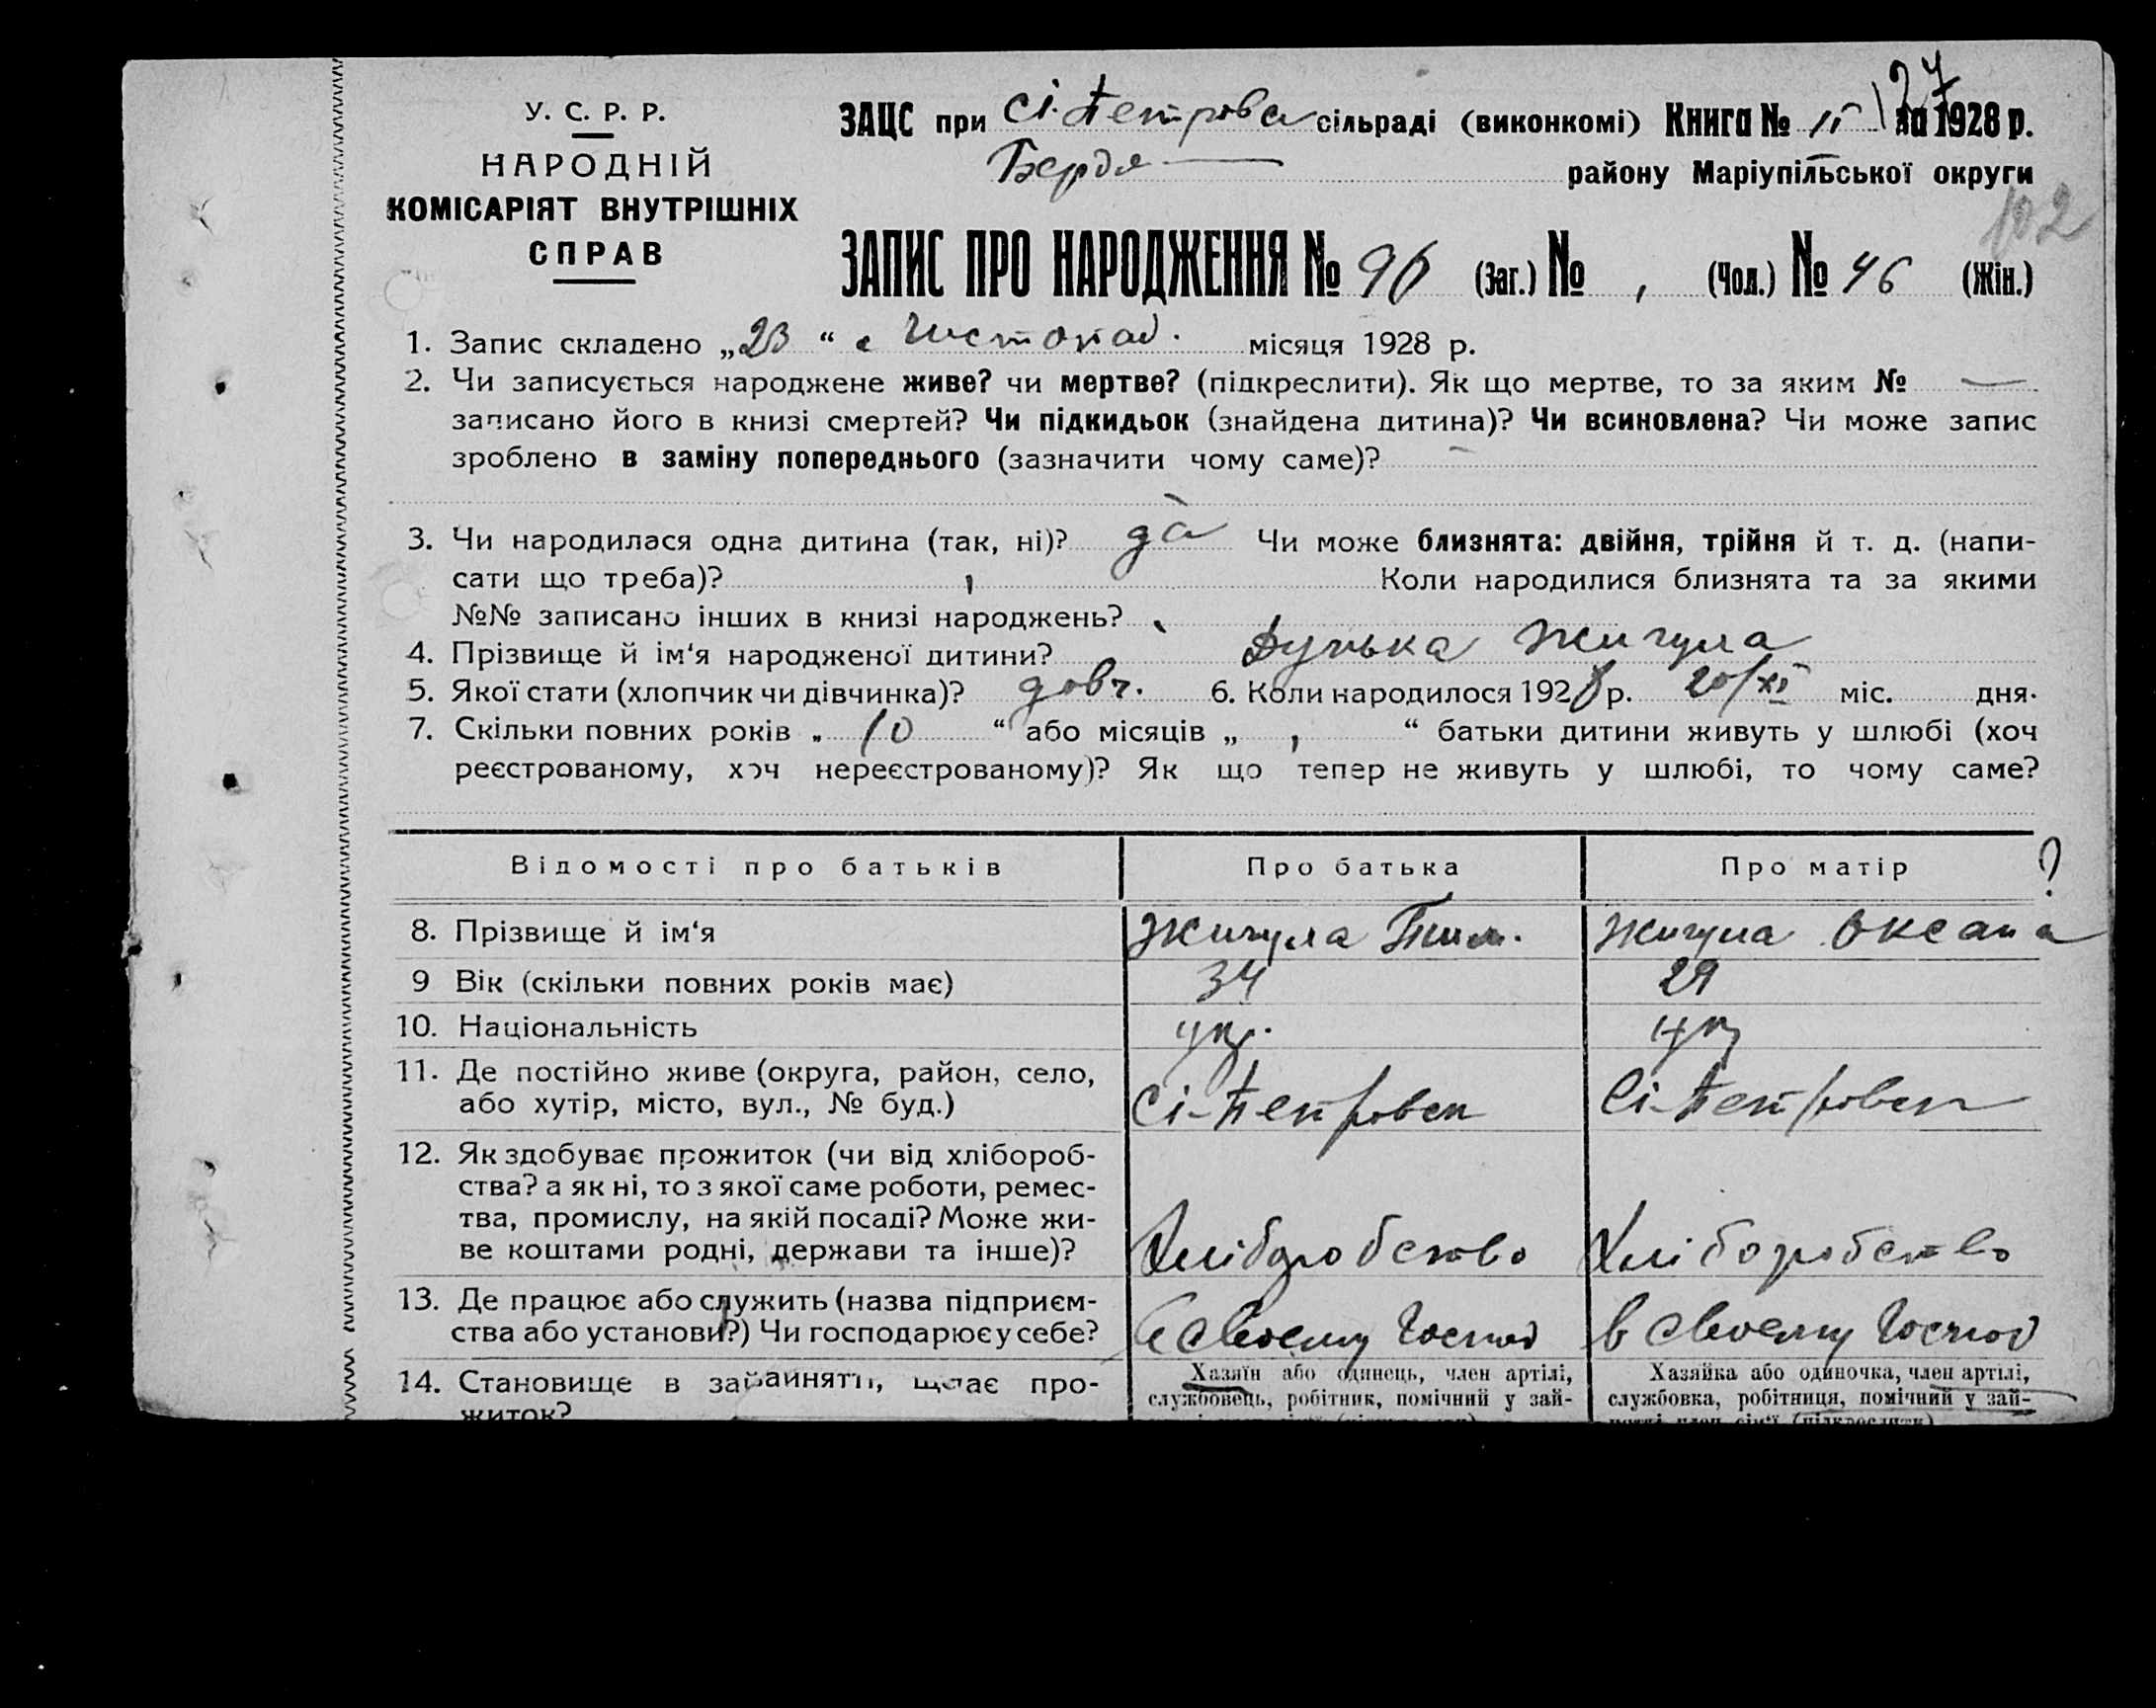 127
У. С. Р. Р.
НАРОДНІЙ
КОМІСАРІЯТ ВНУТРІШНІХ
СПРАВ
ЗАЦС при Сі. Петрова сільраді (виконкомі) Книга № II за 1928 р.
Бердя району Маріупільської округи
102
ЗАПИС ПРО НАРОДЖЕННЯ № 96 (Заг.) № (Чол.) № 46 (Жін.)
1. Запис складено „23“ Листопад. місяця 1928 р.
2. Чи записується народжене живе? чи мертве? (підкреслити). Як що мертве, то за яким № —
записано його в книзі смертей? Чи підкидьок (знайдена дитина)? Чи всиновлена? Чи може запис
зроблено в заміну попереднього (зазначити чому саме)?
3. Чи народилася одна дитина (так, ні)? да Чи може близнята: двійня, трійня й т. д. (напи-
сати що треба)? Коли народилися близнята та за якими
№№ записано інших в книзі народжень?
4. Прізвище й ім‘я народженої дитини? Дунька Жигула
5. Якої стати (хлопчик чи дівчинка)? довч. 6. Коли народилося 1928 р. 20/XI міс. дня.
7. Скільки повних років „ 10 “ або місяців „ “ батьки дитини живуть у шлюбі (хоч
реєстрованому, хоч нереєстрованому)? Як що тепер не живуть у шлюбі, то чому саме?
Відомості про батьків Про батька Про матір ?
8. Прізвище й ім‘я Жигула Тим. Жигула Оксана
9 Вік (скільки повних років має) 34 29
10. Національність укр. укр
11. Де постійно живе (округа, район, село,
або хутір, місто, вул., № буд.) Сі-Петровси Сі-Петровси
12. Як здобуває прожиток (чи від хлібороб-
ства? а як ні, то з якої саме роботи, ремес-
тва, промислу, на якій посаді? Може жи-
ве коштами родні, держави та інше)? Хліборобство Хліборобство
13. Де працює або служить (назва підприєм-
ства або установи?) Чи господарює у себе? в своему Господ в своему Господ
14. Становище в зайнятті, що дає про-
житок?
Хазяїн або одинець, член артілі,
службовець, робітник, помічний у зай-
Хазяйка або одиночка, член артілі,
службовка, робітниця, помічний у зай-
нятті член сім‘ї (підкреслити)